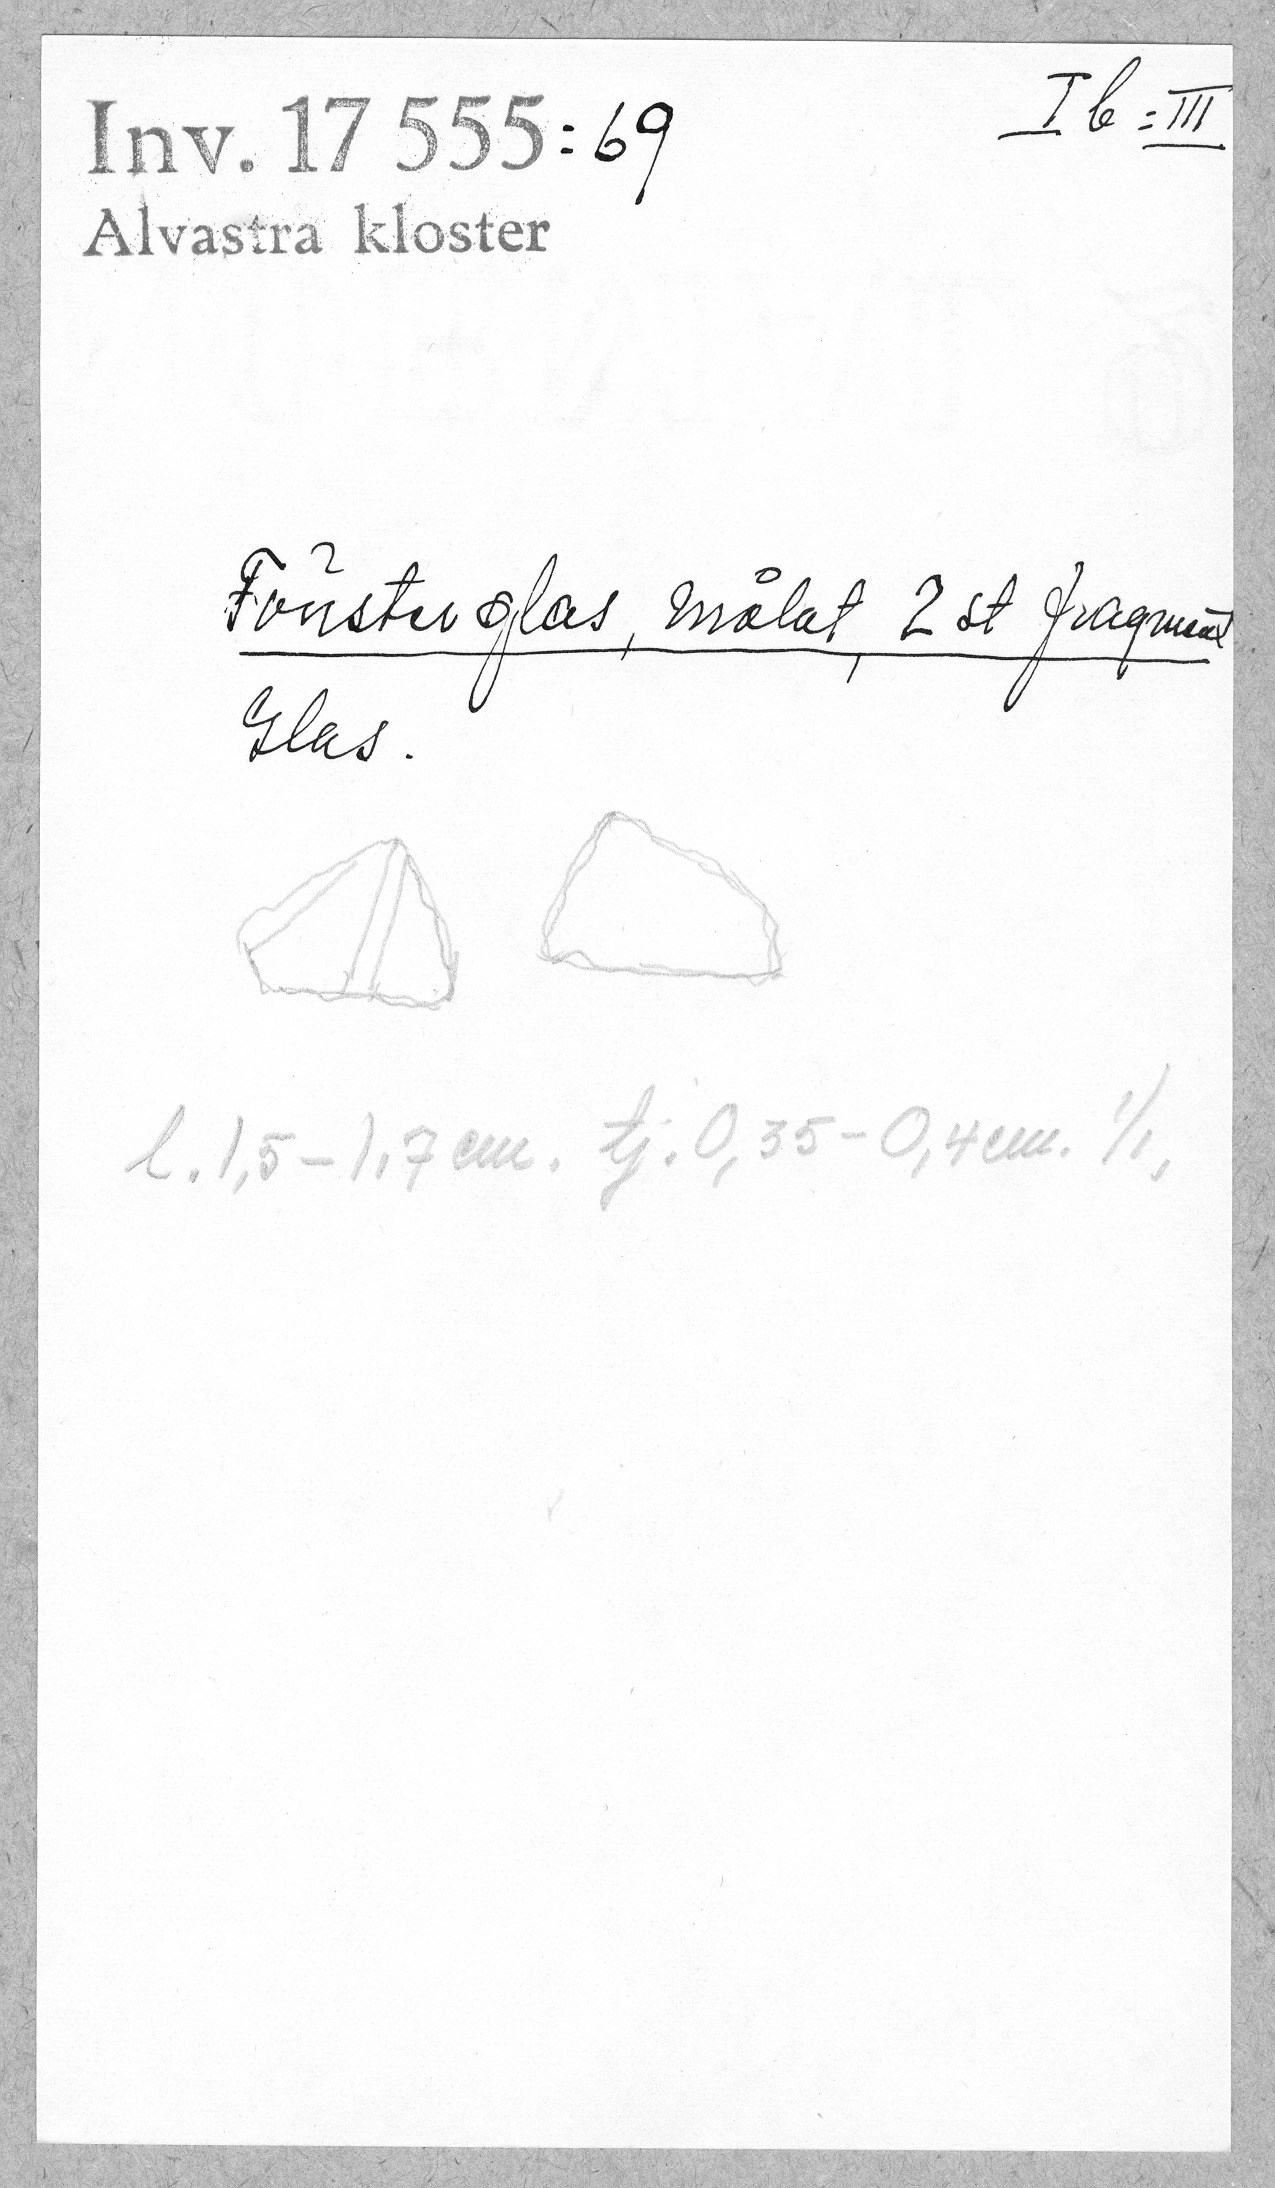 Inv. 17 555:69
I b:III
Alvastra kloster
Fönsterglas, målat, 2 st fragment
Glas.
l. 1,5-1,7 cm. tj. 0,35-0,4 cm. 1/1,